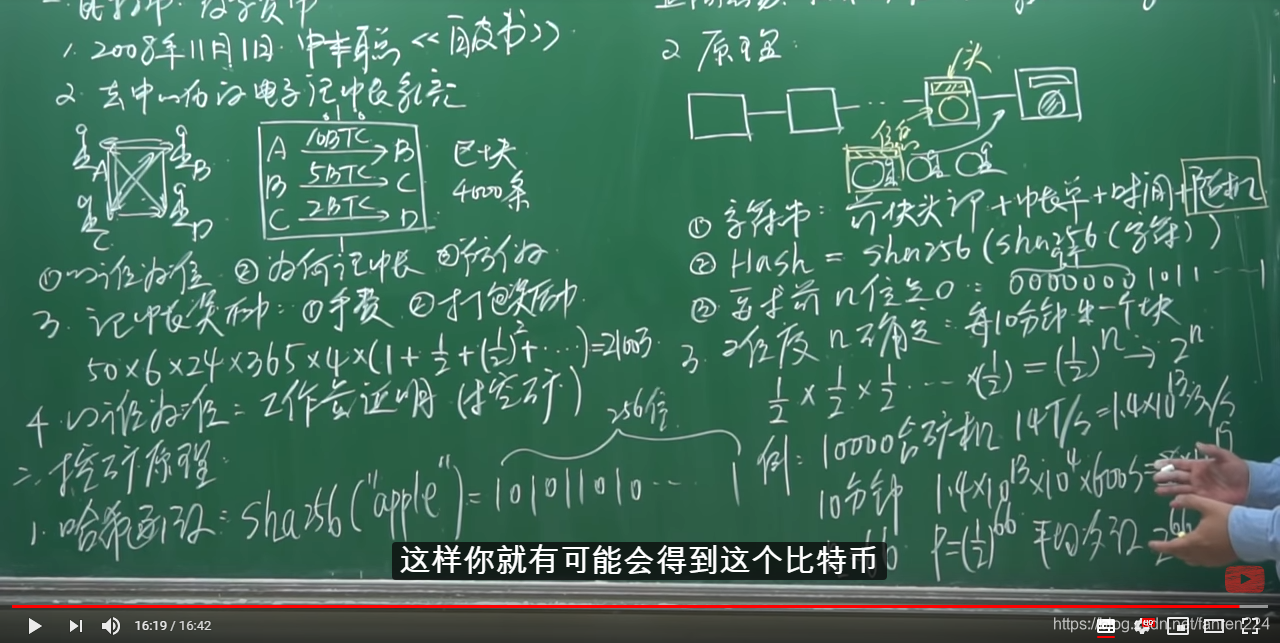 1. 2008年11月1日 中本聪《白皮书》
2. 去中心化的电子记账系统
A 10BTC B
B 5BTC C
C 2BTC D
A
B
C
D
区块
4000条
①以谁为准 ②为何记账 ③防伪
3. 记账奖励: ①手续费 ②打包奖励
50×6×24×365×4×(1+½+(½)²+…)=2100万
4. 以谁为准: 工作量证明 (挖矿)
二、挖矿原理:
1. 哈希函数: sha256("apple")=101011010…1
256位
2. 原理
头
①字符串: 前块头部+账单+时间+随机
②Hash = sha256(sha256(字符))
③要求前n位是0: 00000001011……1
3. 难度n的确定: 每10分钟出一个块
½×½×½…×(½)=(½)ⁿ→2ⁿ
例: 10000台矿机 14T/s=1.4×10¹³次/s
10分钟 1.4×10¹³×10⁴×600s=
P=(½)⁶⁶ 平均次数 2⁶⁶
这样你就有可能会得到这个比特币
16:19 / 16:42
https://blog.csdn.net/fanfen224